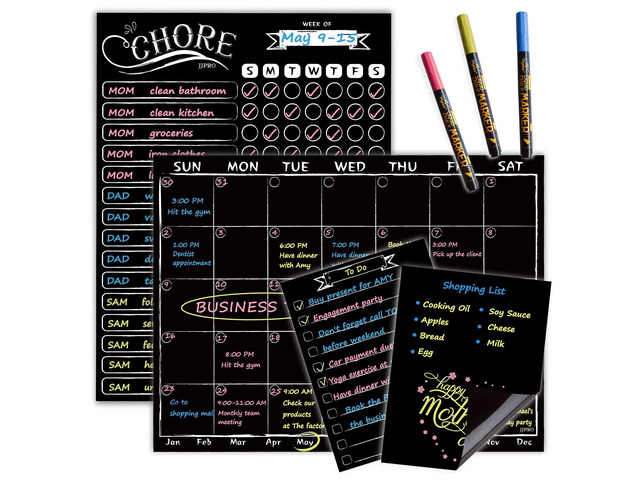 CHORE
JJPRO
WEEK OF
May 9-15
S M T W T F S
MOM clean bathroom
MOM clean kitchen
MOM groceries
MOM iron clothes
MOM
DAD
DAD
DAD
DAD
DAD
SAM
SAM
SAM
SAM
SAM
MARKER
MARKER
MARKER
SUN MON TUE WED THU SAT
30 31
3:00 PM
Hit the gym
2 3 4 5 6 7 8
1:00 PM
Dentist
appointment
6:00 PM
Have dinner
with Amy
7:00 PM
Have dinner
3:00 PM
Pick up the client
9 10 11
BUSINESS
16 17 18
8:00 PM
Hit the gym
23 24 25
Go to
shopping mal
9:00-11:00 AM
Monthly team
meeting
9:00 AM
Check our
products
at The factor
Jan Feb Mar Apr May Nov Dec
To Do
Buy present for AMY
Engagement party
Don't forget call TO
before weekend
Car payment due
Yoga exercise at
Have dinner wi
Book the
the busin
Shopping List
Cooking Oil
Apples
Bread
Egg
Soy Sauce
Cheese
Milk
happy
JJPRO